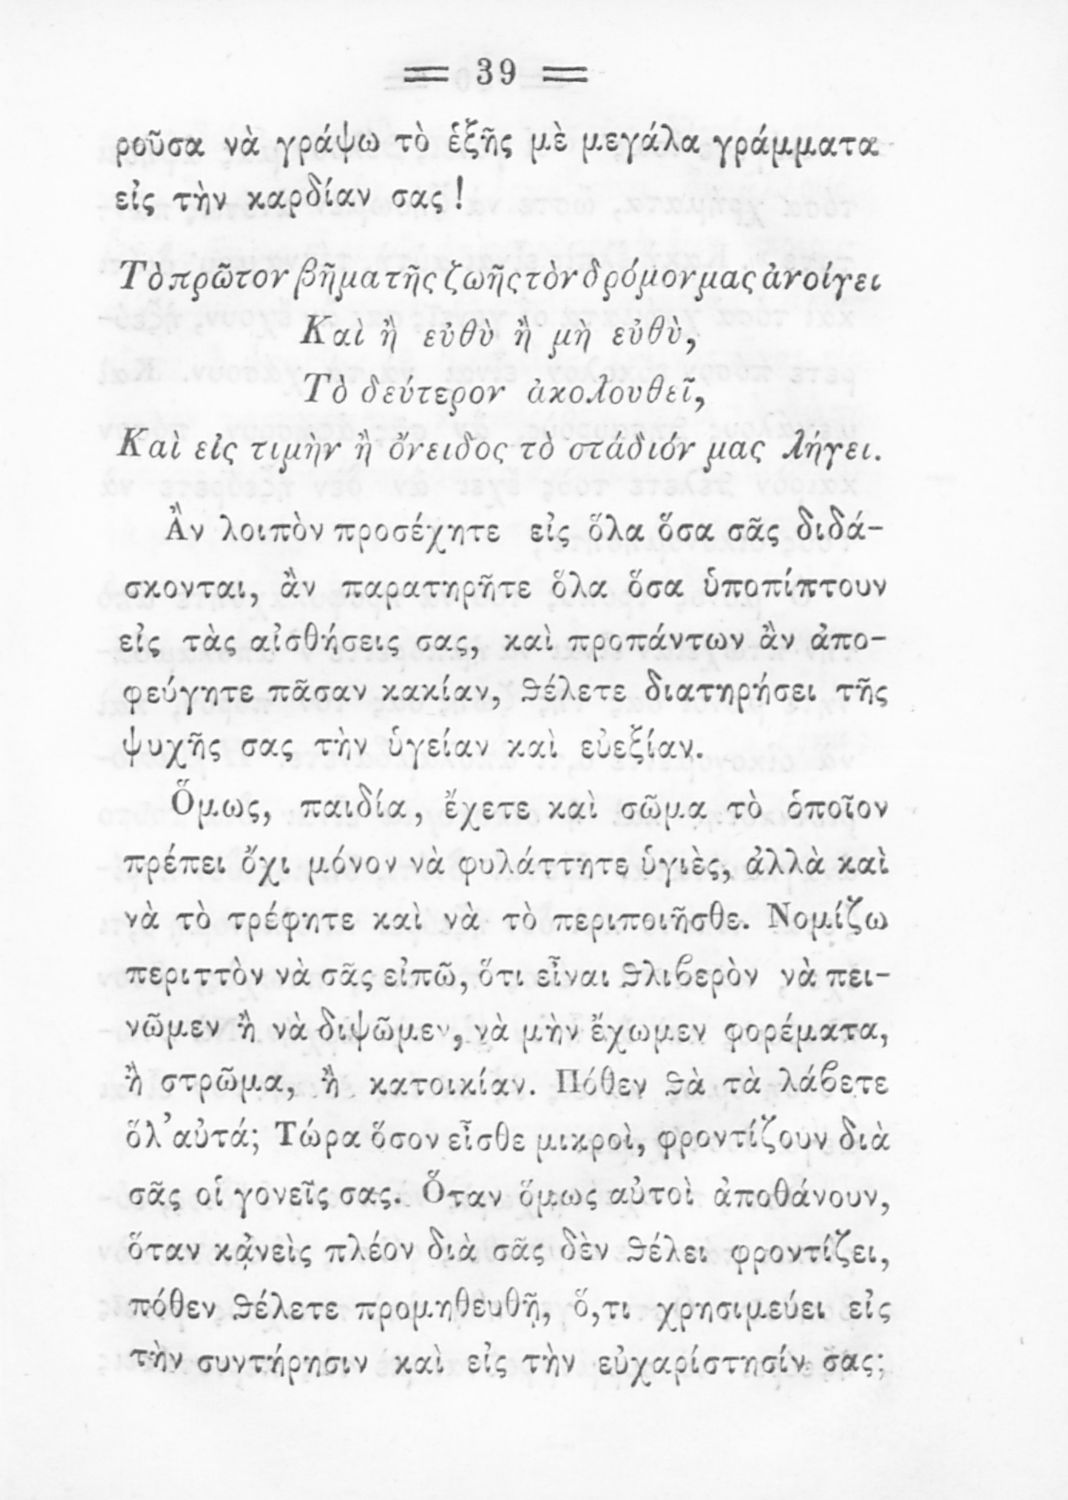 = 39 =
ροῦσα νὰ γράψω τὸ ἑξῆς μὲ μεγάλα γράμματα
εἰς τὴν καρδίαν σας!
Τὸ πρῶτον βῆμα τῆς ζωῆς τὸν δρόμον μας ἀνοίγει
Καὶ ἢ εὐθὺ ἢ μὴ εὐθὺ,
Τὸ δεύτερον ἀκολουθεῖ,
Καὶ εἰς τιμὴν ἢ ὄνειδος τὸ στάδιόν μας λήγει.
Ἂν λοιπὸν προσέχητε εἰς ὅλα ὅσα σᾶς διδά-
σκονται, ἂν παρατηρῆτε ὅλα ὅσα ὑποπίπτουν
εἰς τὰς αἰσθήσεις σας, καὶ προπάντων ἂν ἀπο-
φεύγητε πᾶσαν κακίαν, ϑέλετε διατηρήσει τῆς
ψυχῆς σας τὴν ὑγείαν καὶ εὐεξίαν.
Ὅμως, παιδία, ἔχετε καὶ σῶμα τὸ ὁποῖον
πρέπει ὄχι μόνον νὰ φυλάττητε ὑγιὲς, ἀλλὰ καὶ
νὰ τὸ τρέφητε καὶ νὰ τὸ περιποιῆσθε. Νομίζω
περιττὸν νὰ σᾶς εἰπῶ, ὅτι εἶναι ϑλιϐερὸν νὰ πει-
νῶμεν ἢ νὰ διψῶμεν, νὰ μὴν ἔχωμεν φορέματα,
ἢ στρῶμα, ἢ κατοικίαν. Πόθεν ϑὰ τὰ λάϐετε
ὅλ’ αὐτά; Τώρα ὅσον εἶσθε μικροὶ, φροντίζουν διὰ
σᾶς οἱ γονεῖς σας. Ὅταν ὅμως αὐτοὶ ἀποθάνουν,
ὅταν κᾀνεὶς πλέον διὰ σᾶς δὲν ϑέλει φροντίζει,
πόθεν ϑέλετε προμηθευθῇ, ὅ,τι χρησιμεύει εἰς
τὴν συντήρησιν καὶ εἰς τὴν εὐχαρίστησίν σας;